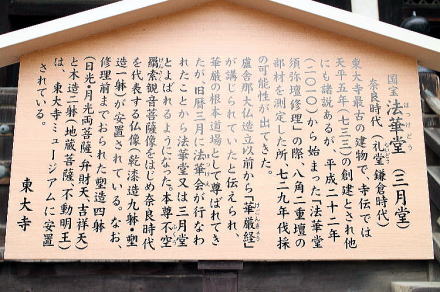 国宝 法華堂（三月堂）
ほっけどう
奈良時代（礼堂 鎌倉時代）
東大寺最古の建物で、寺伝では
天平五年（七三三）の創建とされ他
にも諸説あるが、平成二十二年
（二〇一〇）から始まった「法華堂
須弥壇修理」の際、八角二重壇の
部材を測定した所、七二九年伐採
の可能性が出てきた。
盧舎那大仏造立以前から「華厳経」
けごんきょう
が講じられていたと伝えられ、
華厳の根本道場として尊ばれてき
たが、旧暦三月に法華会が行なわ
れたことから法華堂又は三月堂
とよばれるようになった。本尊不空
羂索観音菩薩像をはじめ奈良時代
を代表する仏像（乾漆造九躯・塑
造一躯）が安置されている。なお、
修理前までおられた塑造四躯
（日光・月光両菩薩、弁財天・吉祥天）
と木造二躯（地蔵菩薩、不動明王）
は、東大寺ミュージアムに安置
されている。
東大寺